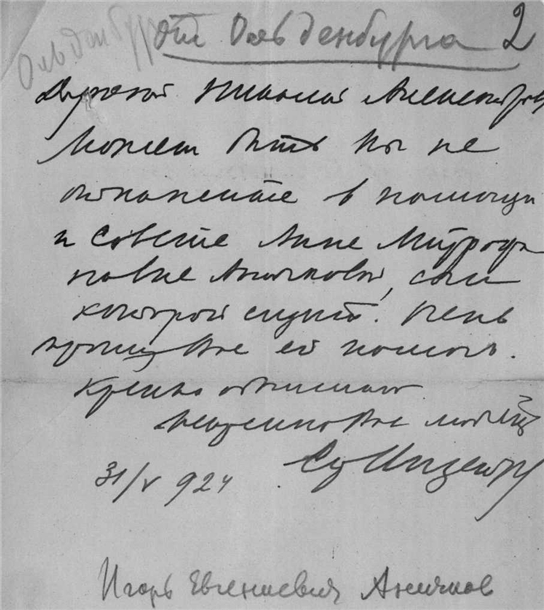 Ольденбург
От Ольденбурга 2
Дорогой Николай Александров
Может быть Вы не
откажете в помощи
и совете Анне Митрофа
новне Аничковой, сын
которой сидит. Очень
прошу Вас ей помочь.
Крепко обнимаю
неизменно Вас любящий
31/V 924
Игорь Евгениевич Аничков